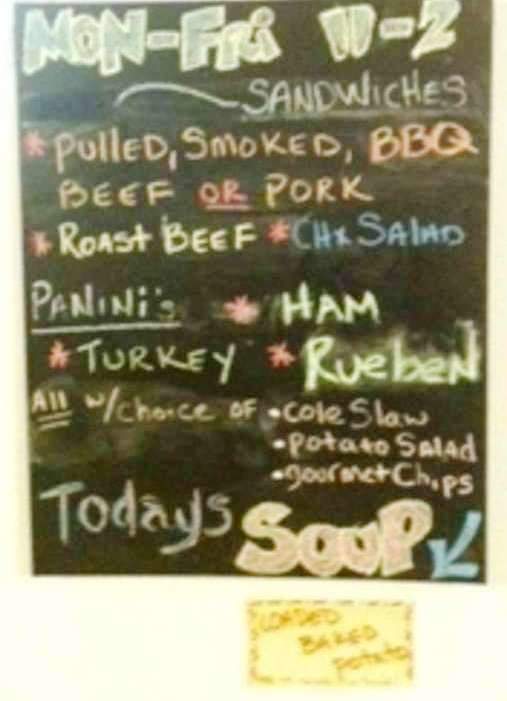 MON-FRi 11-2
SANDWICHES
* PULLED, SMOKED, BBQ
BEEF OR PORK
* ROAST BEEF * CHX SALAD
PANINI's * HAM
* TURKEY * RuebeN
All w/choice OF • cole Slaw
• potato SALAD
• gourmet Chips
Todays SOUP
LOADED
BAKED
Potato